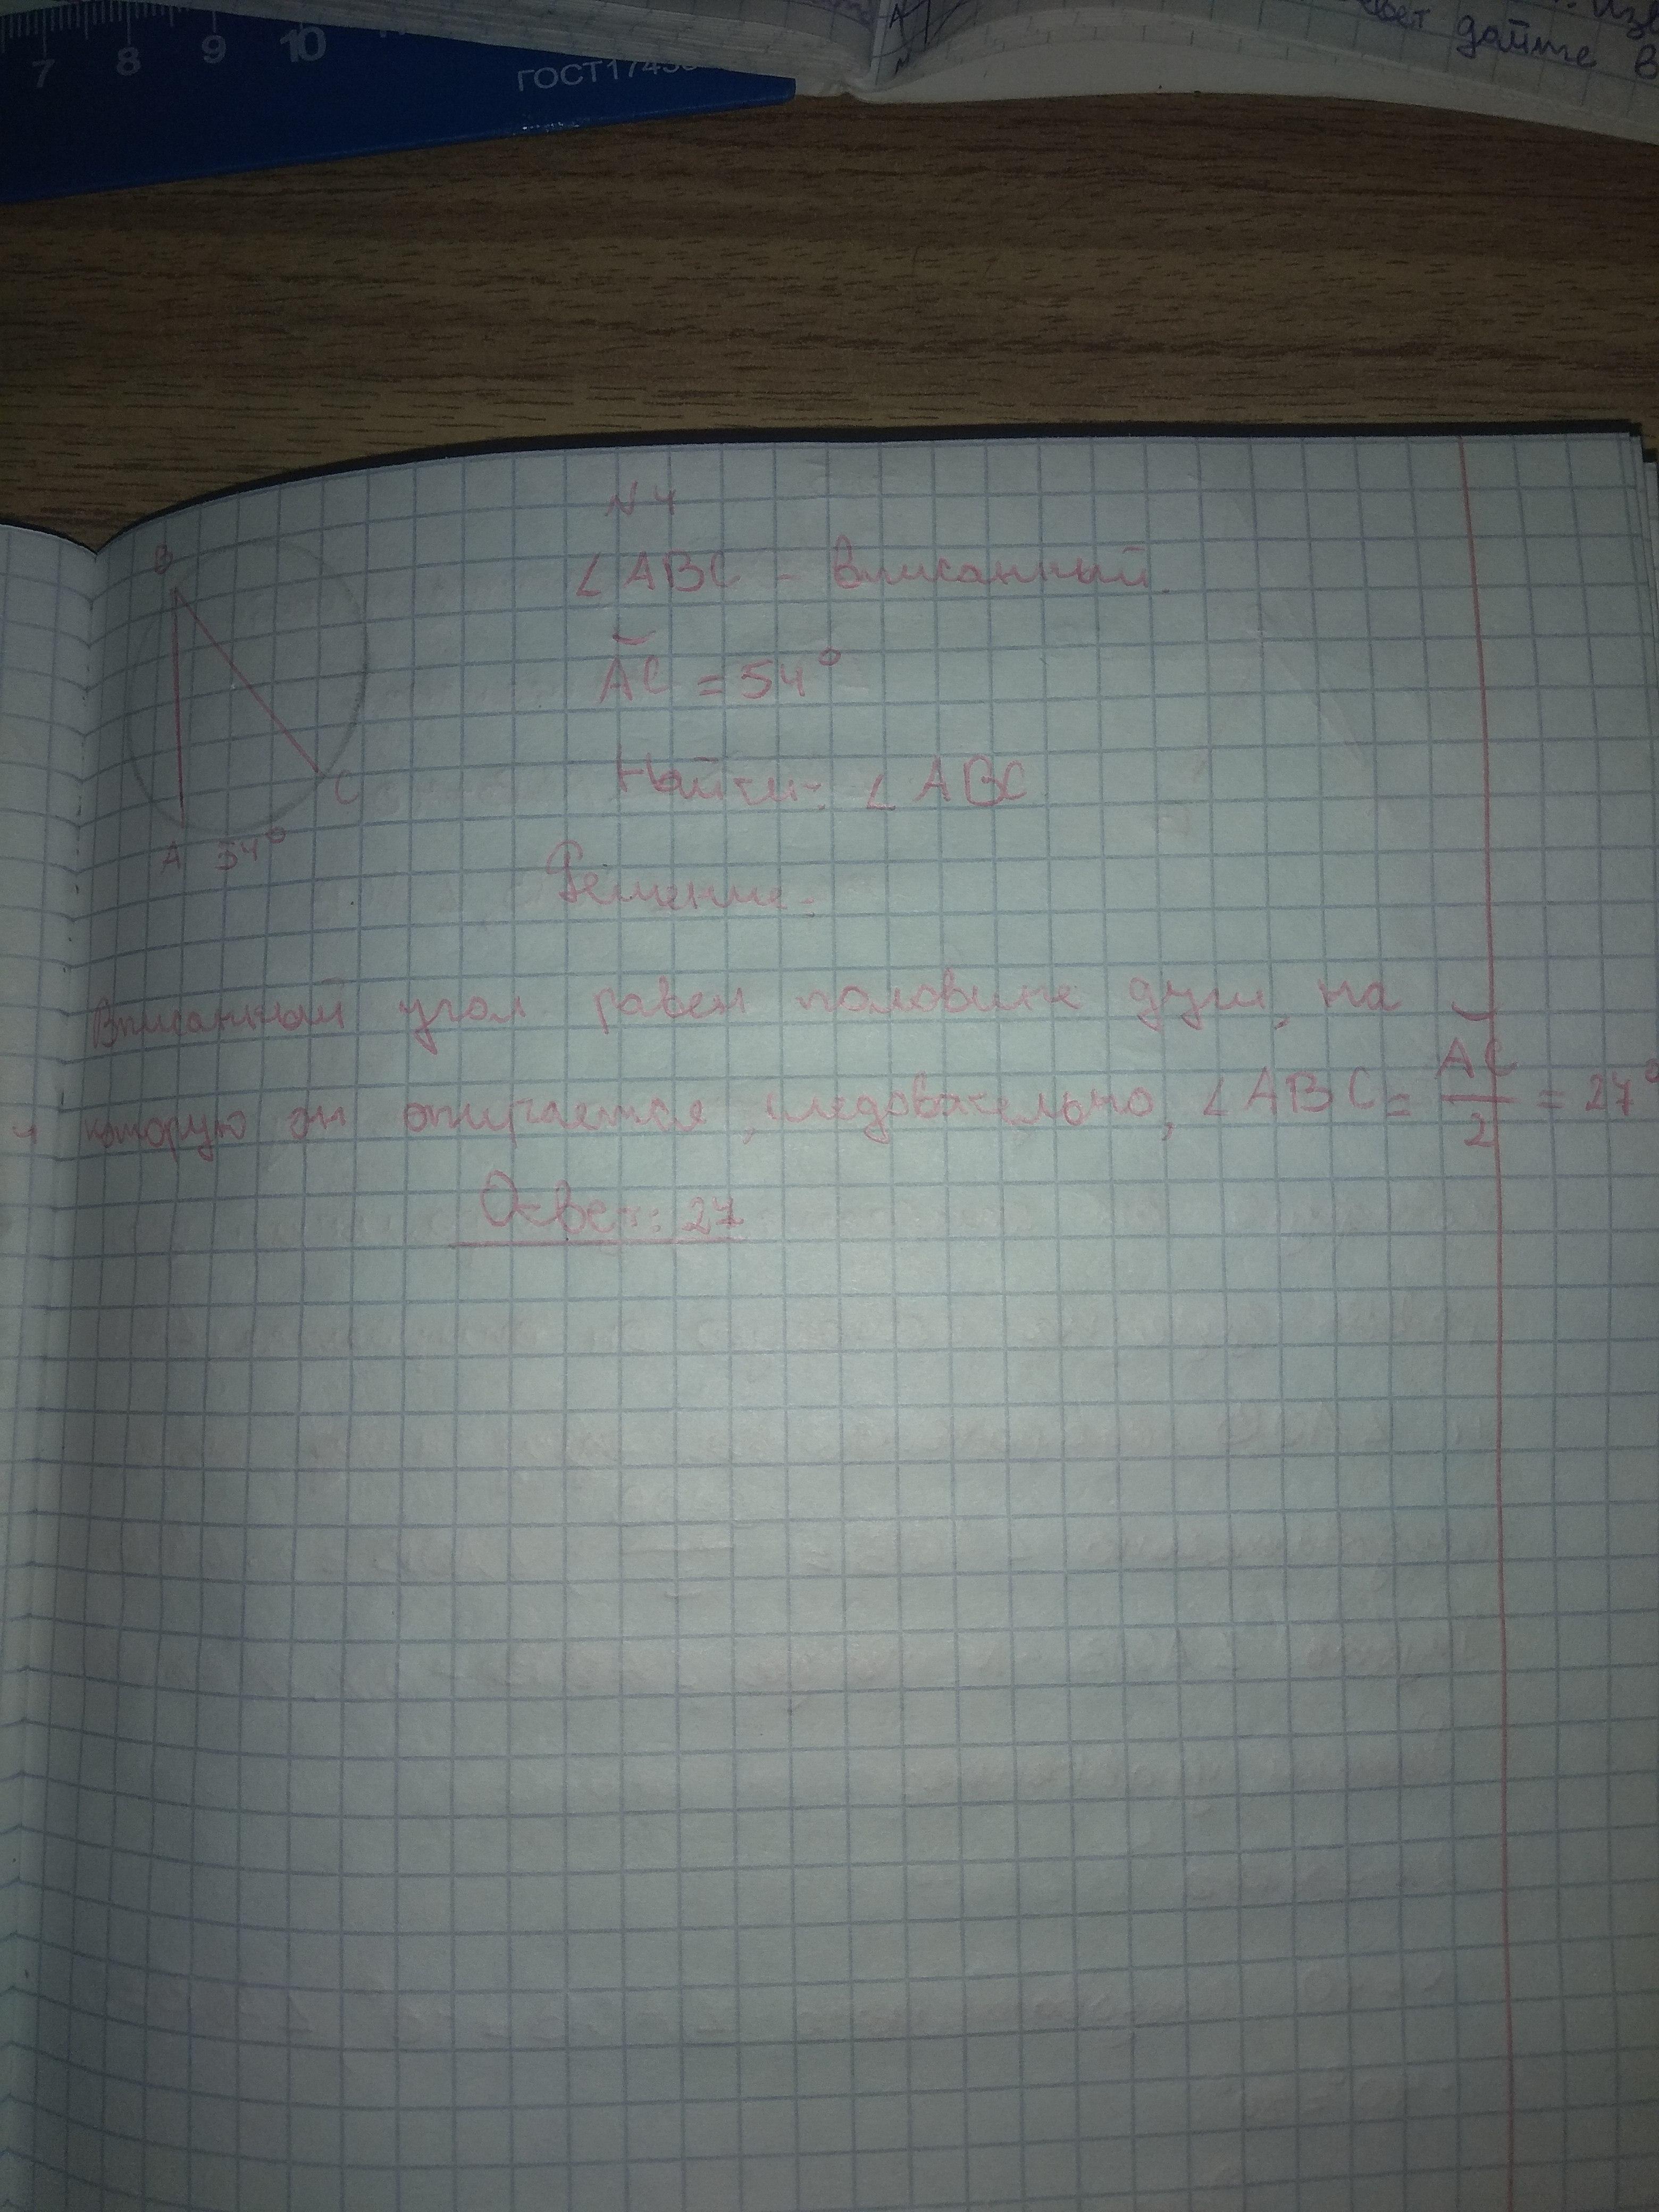 7 8 9 10
ГОСТ 1743
А
ответ дайте в
N4
B
∠ABC - вписанный
AC = 54°
Найти: ∠ABC
C
A 54°
Решение:
Вписанный угол равен половине дуги, на
которую он опирается, следовательно, ∠ABC = AC/2 = 27°
Ответ: 27